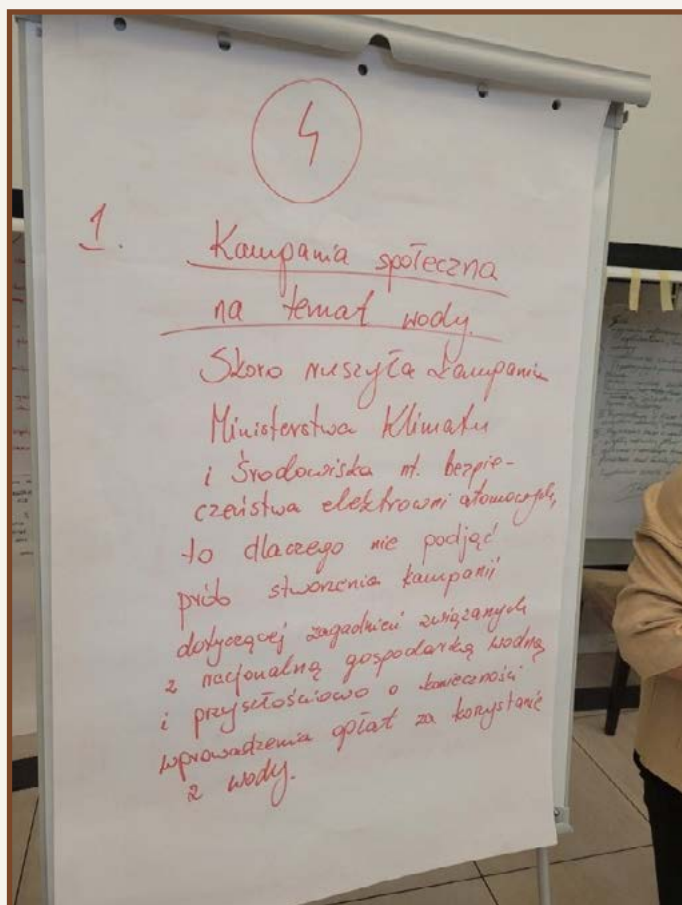 4
1.
Kampania społeczna
na temat wody.
Skoro ruszyła kampania
Ministerstwa Klimatu
i Środowiska nt. bezpie-
czeństwa elektrowni atomowych,
to dlaczego nie podjąć
prób stworzenia kampanii
dotyczącej zagadnień związanych
z racjonalną gospodarką wodną
i przyszłościowo o konieczności
wprowadzenia opłat za korzystanie
z wody.